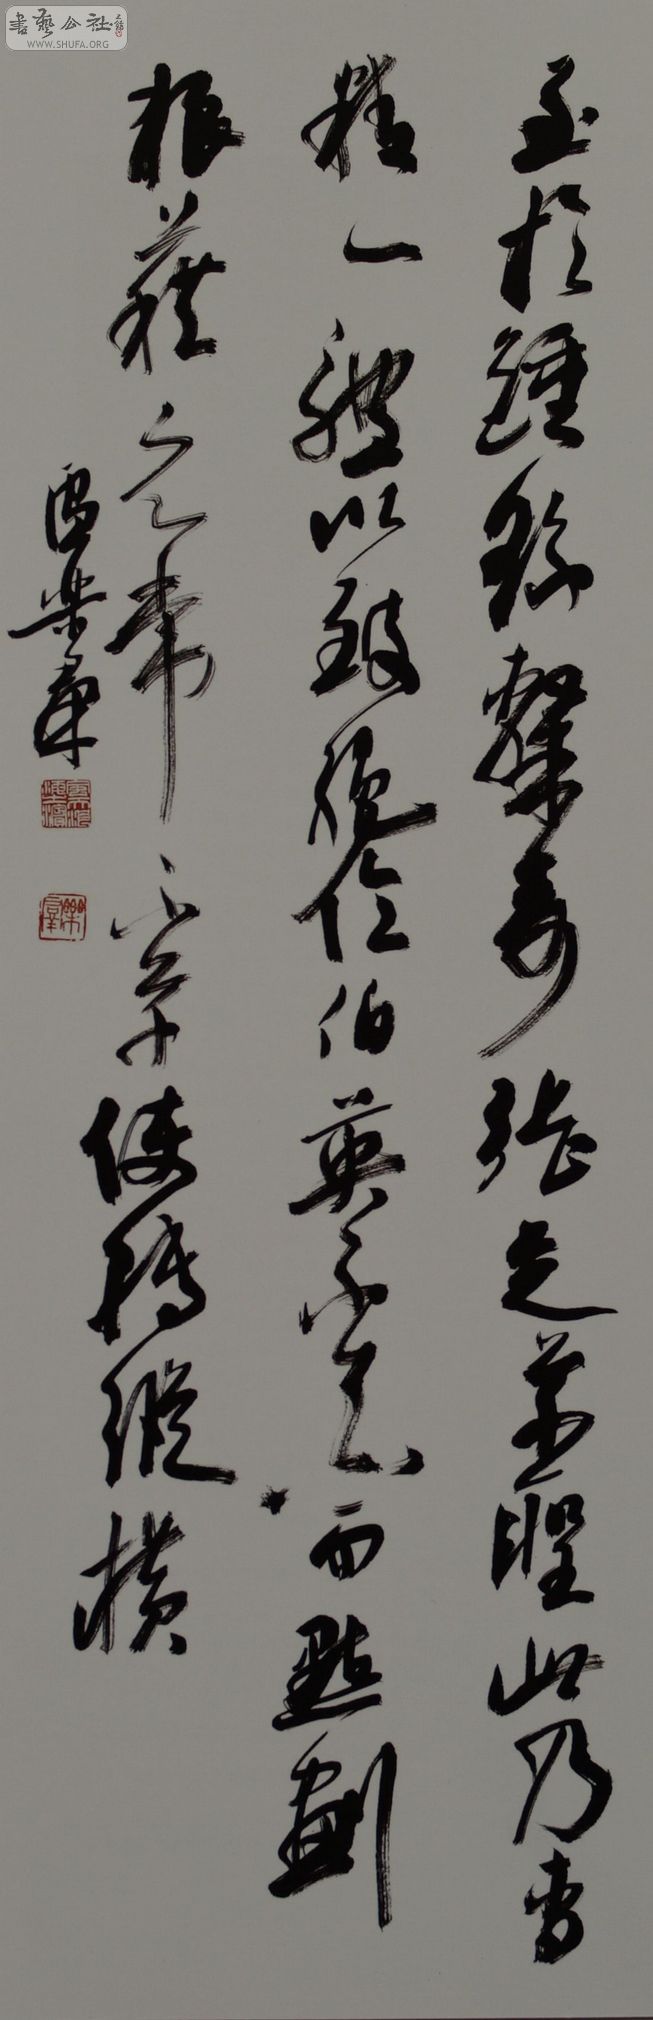 書藝公社
WWW.SHUFA.ORG
至於鍾繇隸奇張芝草聖此乃專
精一體以致絕倫伯英不真而點劃
狼藉元常不草使轉縱橫